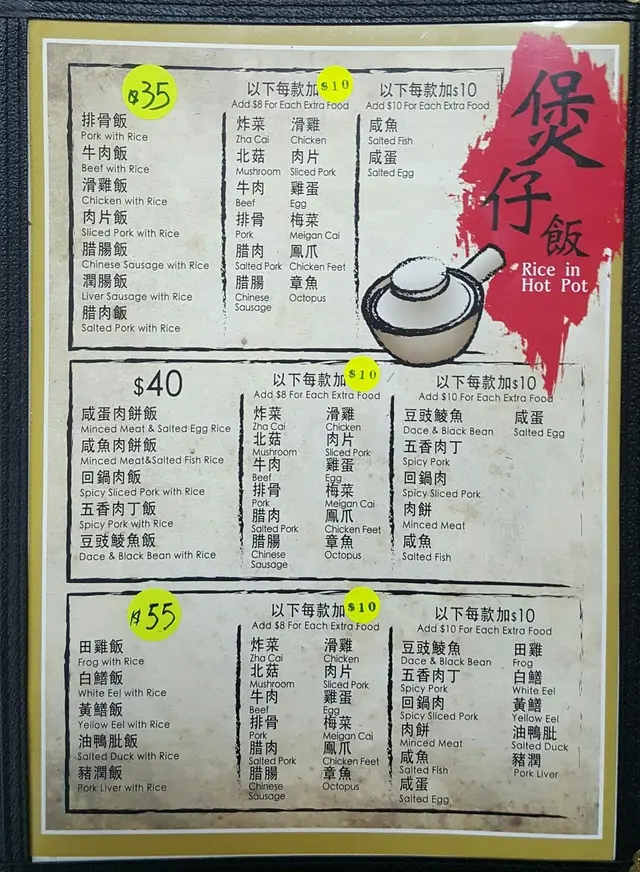 煲仔飯
Rice in
Hot Pot
$35
排骨飯
Pork with Rice
牛肉飯
Beef with Rice
滑雞飯
Chicken with Rice
肉片飯
Sliced Pork with Rice
腊腸飯
Chinese Sausage with Rice
潤腸飯
Liver Sausage with Rice
腊肉飯
Salted Pork with Rice
以下每款加$10
Add $8 For Each Extra Food
炸菜 滑雞
Zha Cai Chicken
北菇 肉片
Mushroom Sliced Pork
牛肉 雞蛋
Beef Egg
排骨 梅菜
Pork Meigan Cai
腊肉 鳳爪
Salted Pork Chicken Feet
腊腸 章魚
Chinese Octopus
Sausage
以下每款加$10
Add $10 For Each Extra Food
咸魚
Salted Fish
咸蛋
Salted Egg
$40
咸蛋肉餅飯
Minced Meat & Salted Egg Rice
咸魚肉餅飯
Minced Meat&Salted Fish Rice
回鍋肉飯
Spicy Sliced Pork with Rice
五香肉丁飯
Spicy Pork with Rice
豆豉鯪魚飯
Dace & Black Bean with Rice
以下每款加$10
Add $8 For Each Extra Food
炸菜 滑雞
Zha Cai Chicken
北菇 肉片
Mushroom Sliced Pork
牛肉 雞蛋
Beef Egg
排骨 梅菜
Pork Meigan Cai
腊肉 鳳爪
Salted Pork Chicken Feet
腊腸 章魚
Chinese Octopus
Sausage
以下每款加$10
Add $10 For Each Extra Food
豆豉鯪魚 咸蛋
Dace & Black Bean Salted Egg
五香肉丁
Spicy Pork
回鍋肉
Spicy Sliced Pork
肉餅
Minced Meat
咸魚
Salted Fish
$55
田雞飯
Frog with Rice
白鱔飯
White Eel with Rice
黃鱔飯
Yellow Eel with Rice
油鴨肶飯
Salted Duck with Rice
豬潤飯
Pork Liver with Rice
以下每款加$10
Add $8 For Each Extra Food
炸菜 滑雞
Zha Cai Chicken
北菇 肉片
Mushroom Sliced Pork
牛肉 雞蛋
Beef Egg
排骨 梅菜
Pork Meigan Cai
腊肉 鳳爪
Salted Pork Chicken Feet
腊腸 章魚
Chinese Octopus
Sausage
以下每款加$10
Add $10 For Each Extra Food
豆豉鯪魚 田雞
Dace & Black Bean Frog
五香肉丁 白鱔
Spicy Pork White Eel
回鍋肉 黃鱔
Spicy Sliced Pork Yellow Eel
肉餅 油鴨肶
Minced Meat Salted Duck
咸魚 豬潤
Salted Fish Pork Liver
咸蛋
Salted Egg